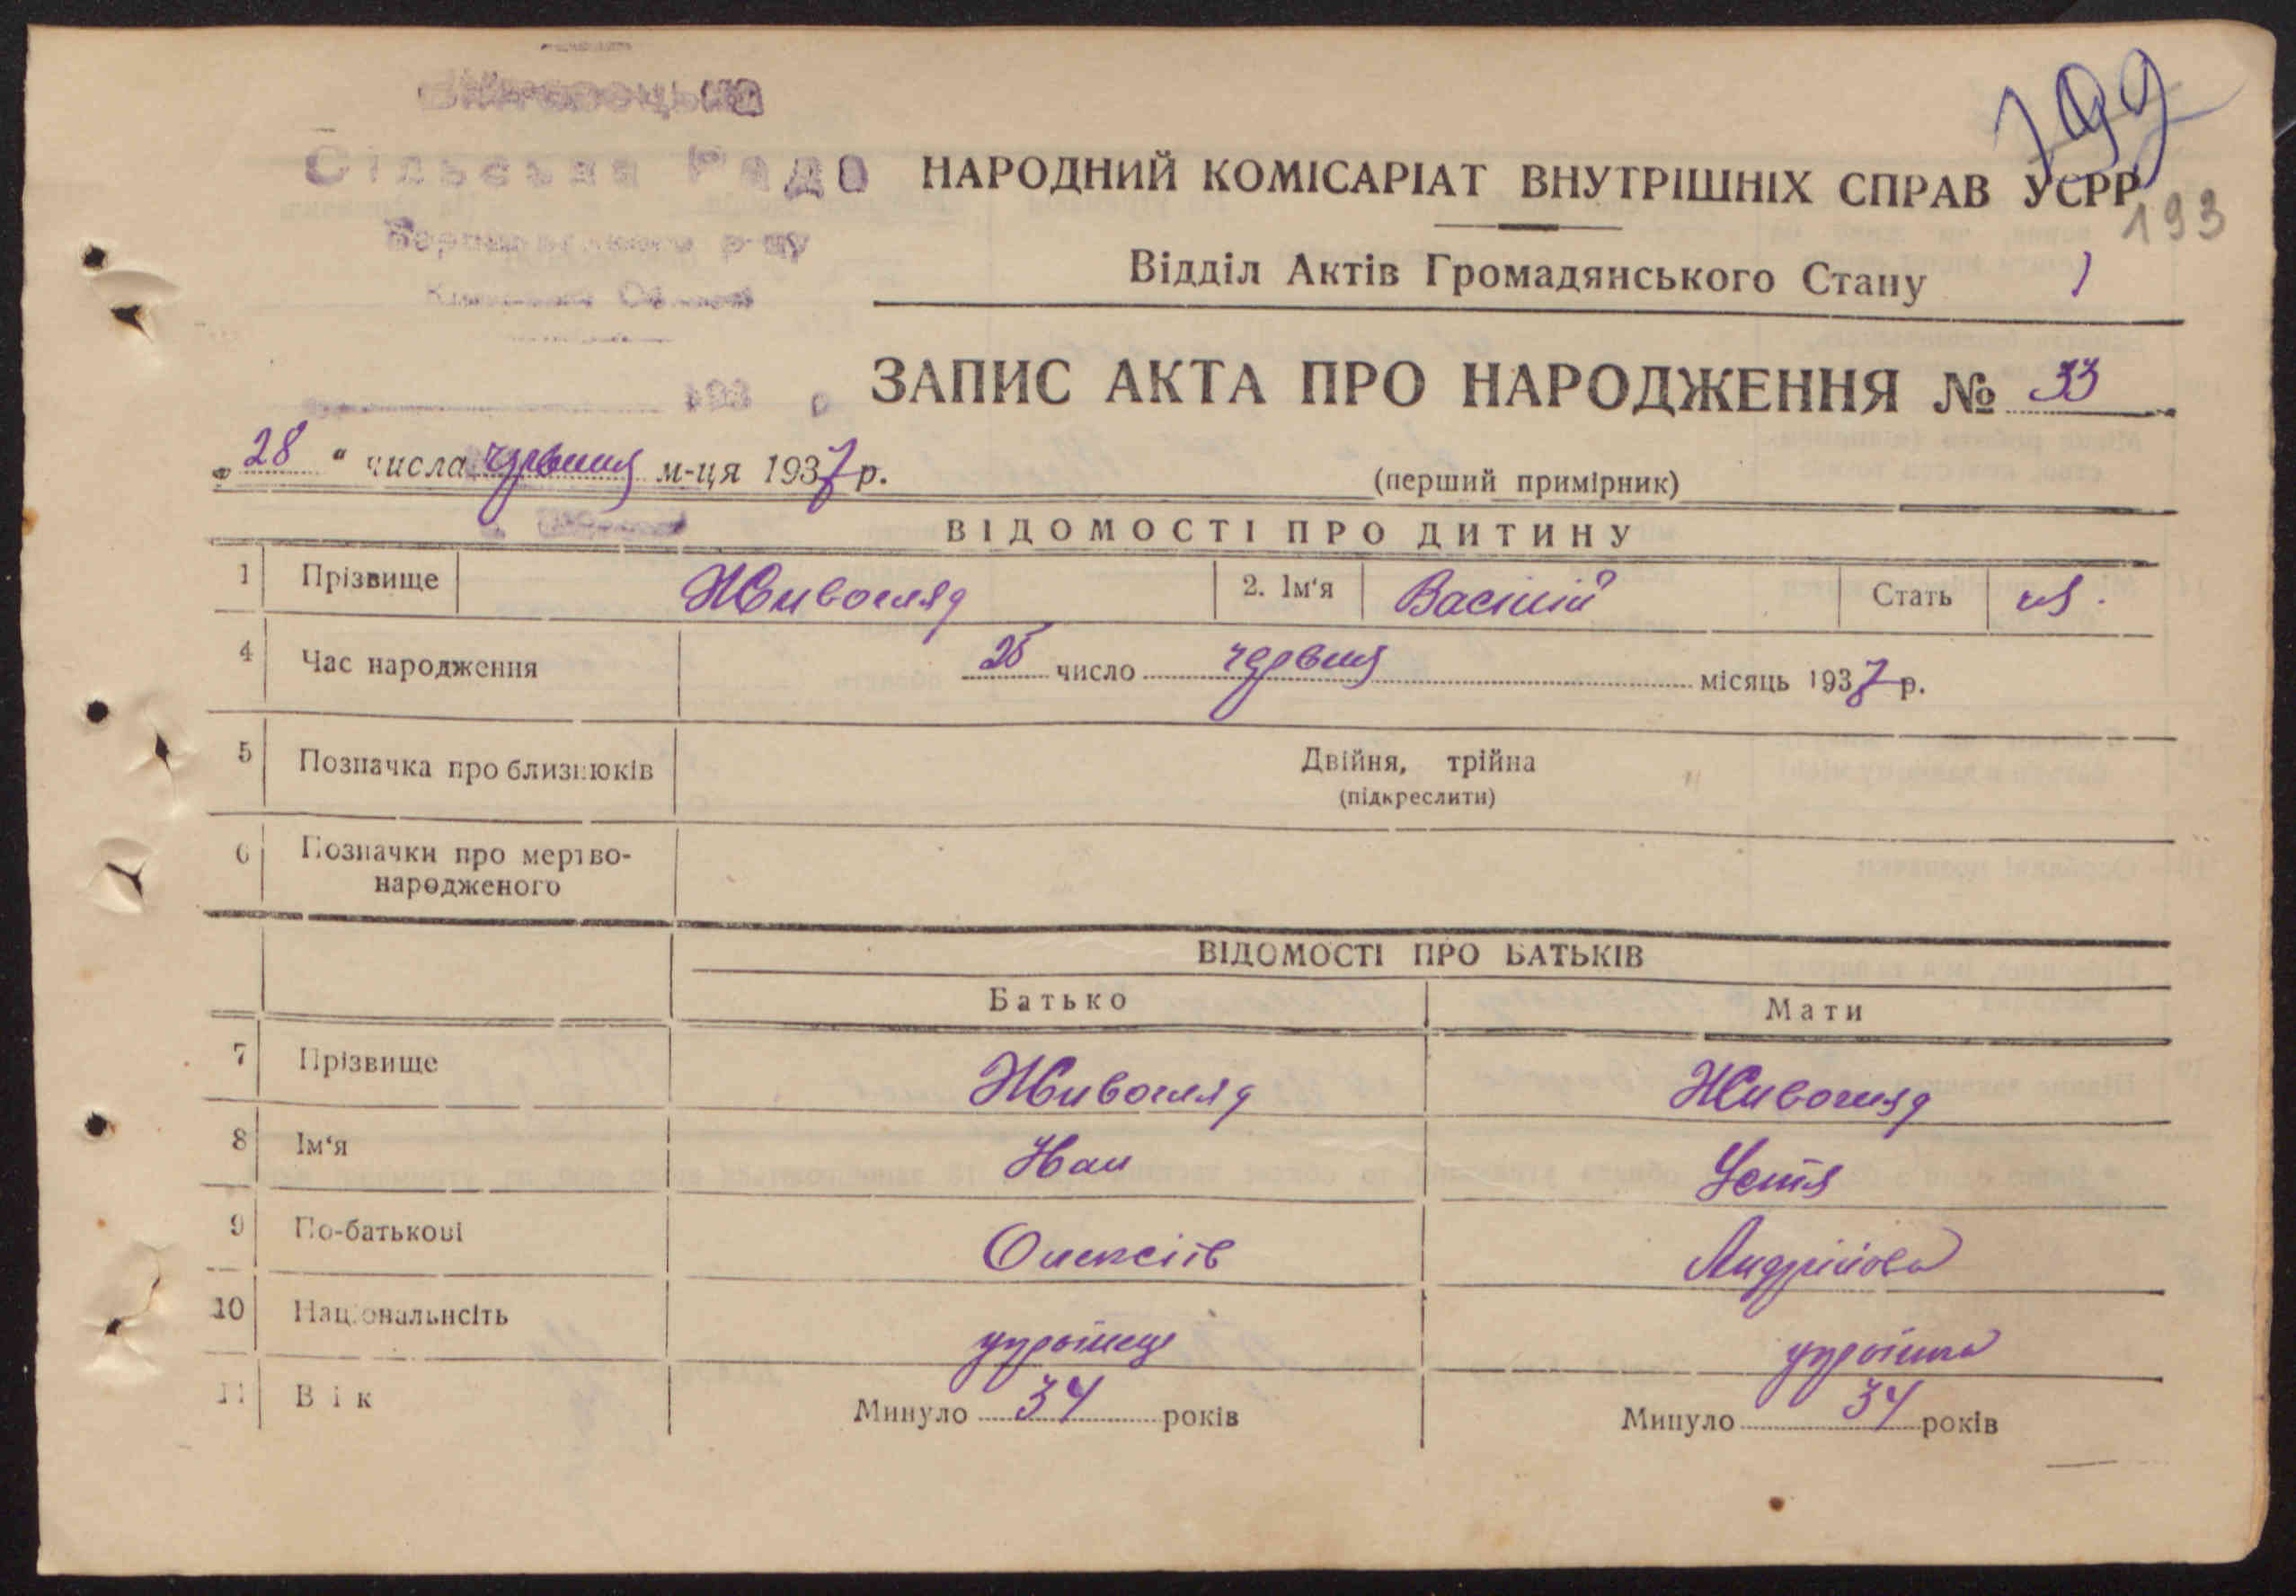 199
Сільська Рада
НАРОДНИЙ КОМІСАРІАТ ВНУТРІШНІХ СПРАВ УСРР
193
р-ну
Відділ Актів Громадянського Стану
193 р
ЗАПИС АКТА ПРО НАРОДЖЕННЯ № 33
„ 28 “ числа червня м-ця 1937 р.
(перший примірник)
ВІДОМОСТІ ПРО ДИТИНУ
1 Прізвище Живогляд 2. Ім‘я Василій Стать ч.
4 Час народження число червня місяць 1937 р.
5 Позначка про близнюків Двійня, трійна
(підкреслити)
6 Позначки про мертво-
народженого
ВІДОМОСТІ ПРО БАТЬКІВ
Батько Мати
7 Прізвище Живогляд Живогляд
8 Ім‘я Іван Устя
9 По-батькові Олексіїв Андріїова
10 Національнсіть українець українка
11 Вік Минуло 34 років Минуло 34 років